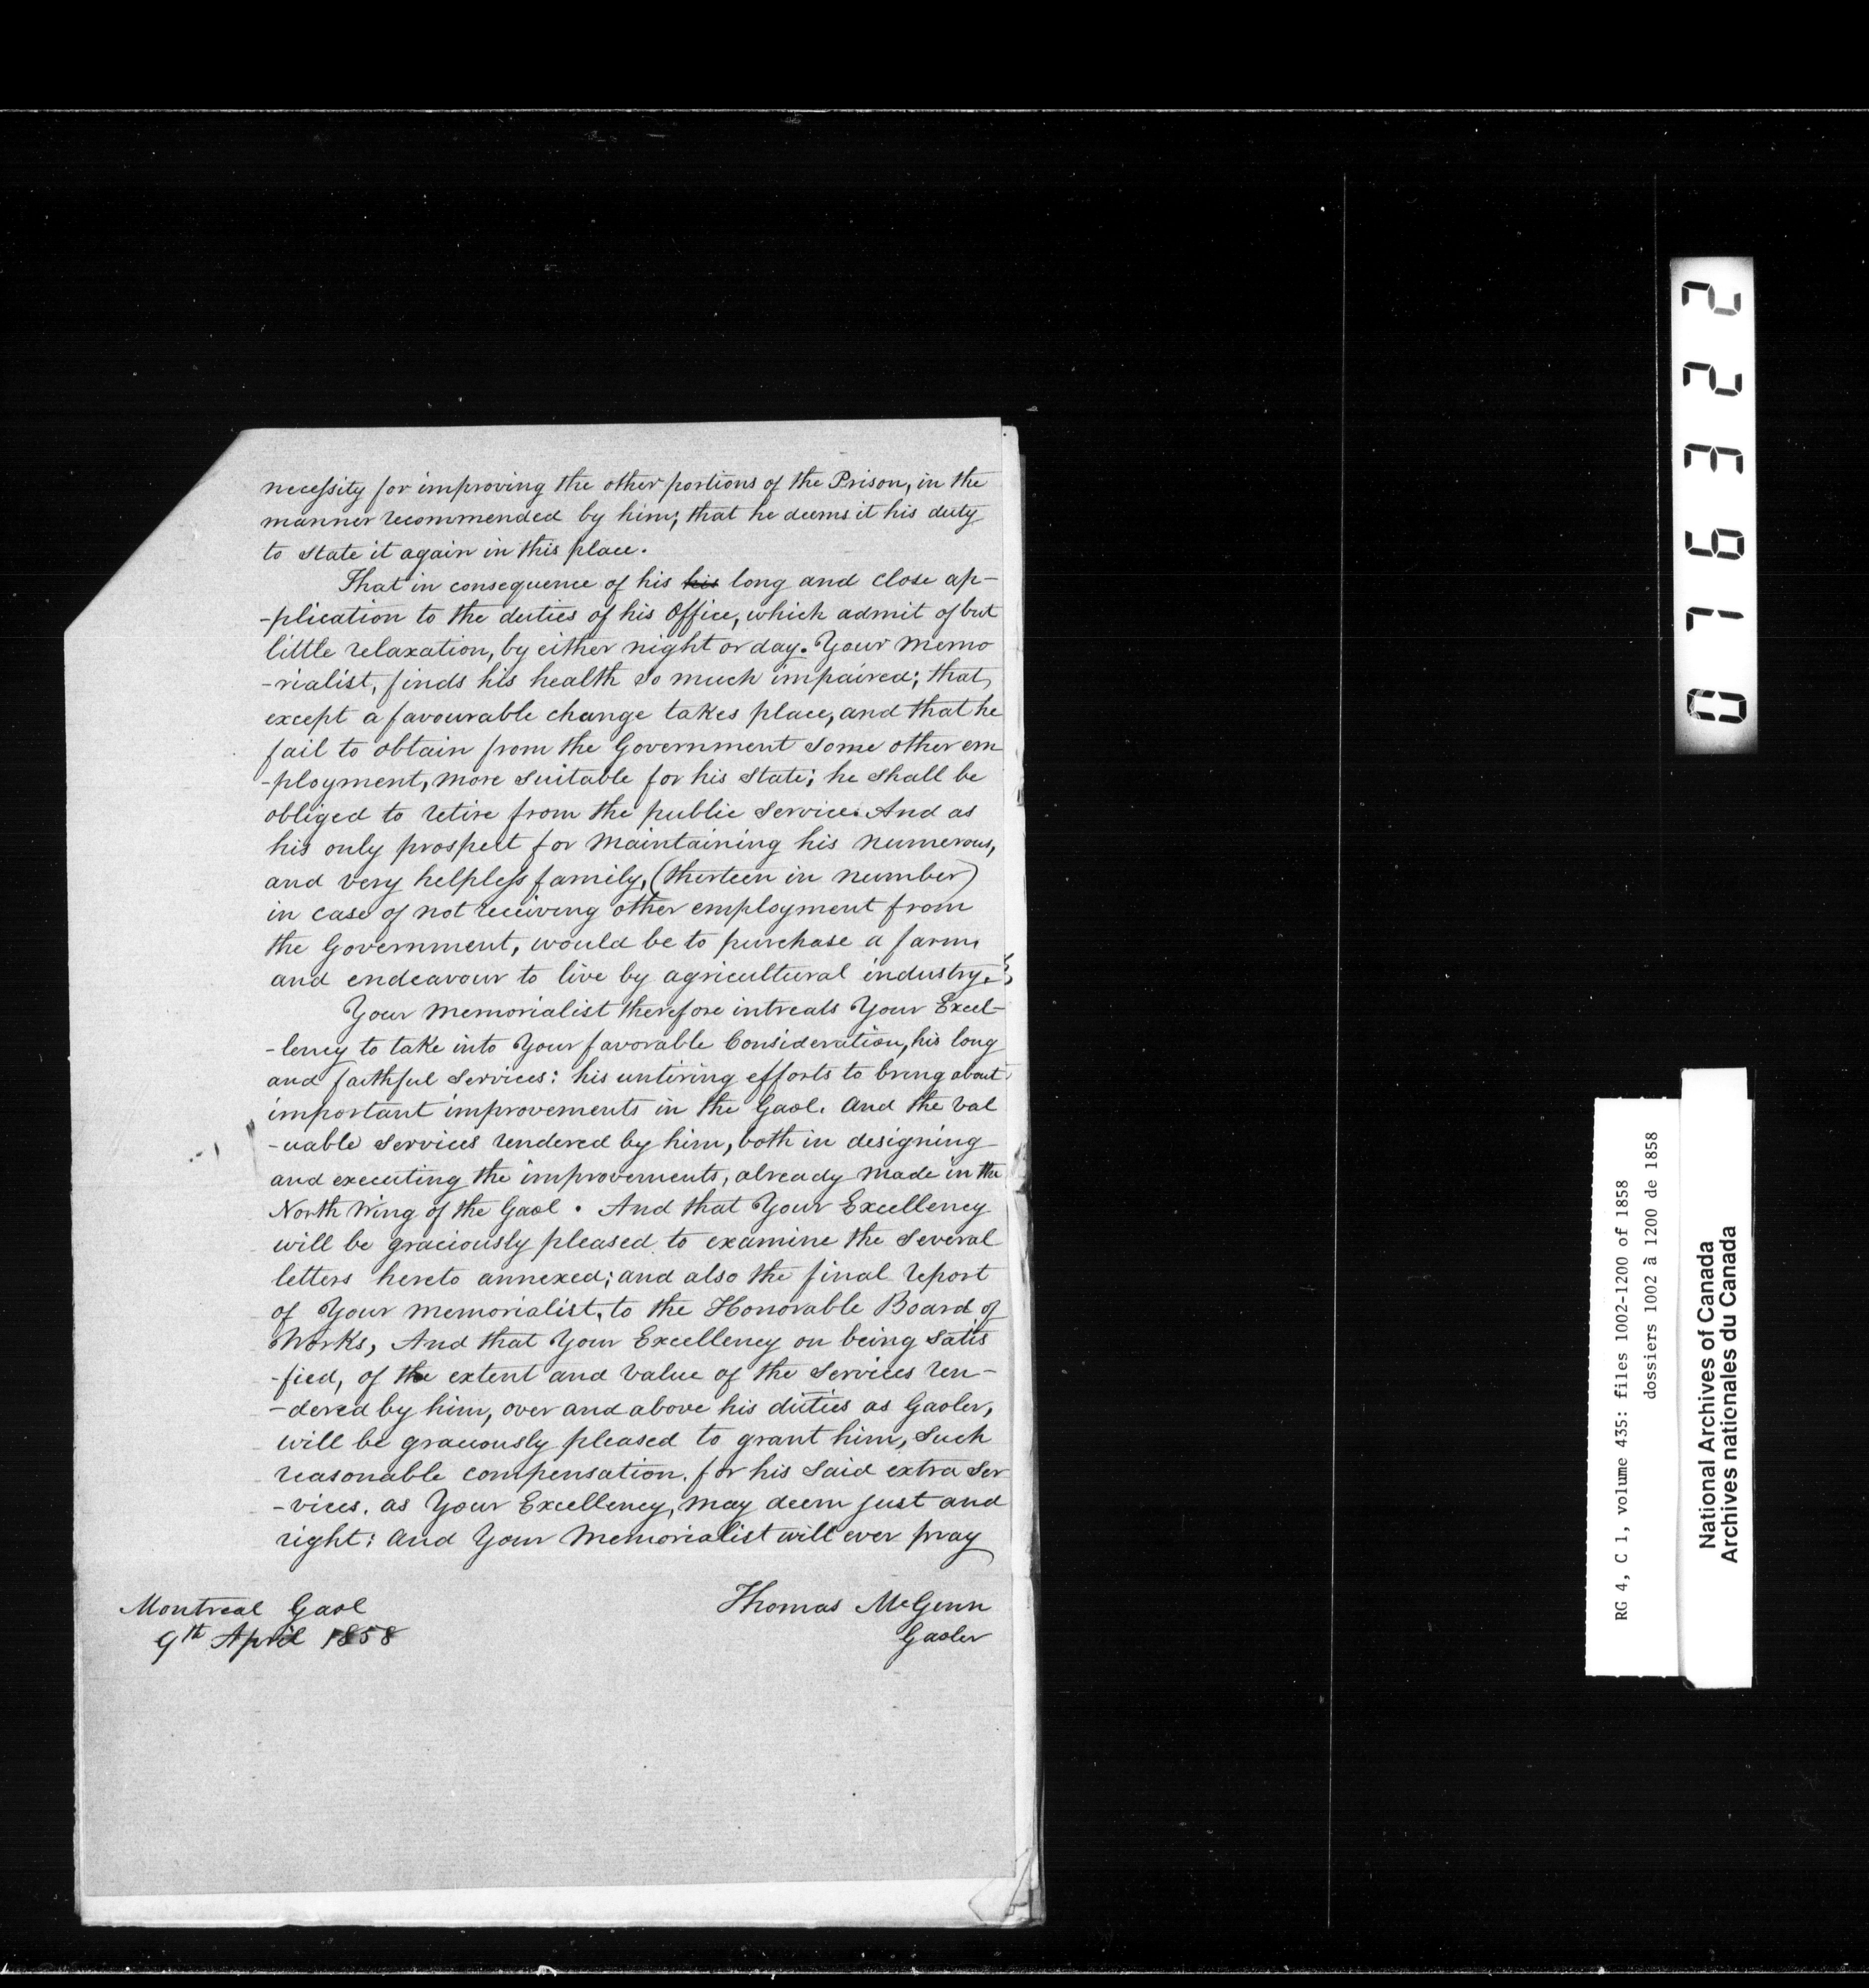 necessity for improving the other portions of the Prison, in the
manner recommended by him; that he deems it his duty
to state it again in this place.
That in consequence of his his long and close ap-
-plication to the duties of his Office, which admit of but
little relaxation, by either night or day. Your Memo
-rialist, finds his health so much impaired; that,
except a favourable change takes place, and that he
fail to obtain from the Government some other em
-ployment, more suitable for his state; he shall be
obliged to retire from the public service. And as
his only prospect for maintaining his numerous,
and very helpless family, (thirteen in number)
in case of not receiving other employment from
the Government, would be to purchase a farm,
and endeavour to live by agricultural industry.
Your Memorialist therefore intreats Your Excel-
-lency to take into Your favorable Consideration, his long
and faithful services: his untiring efforts to bring about
important improvements in the Gaol. And the val
-uable services rendered by him, both in designing
and executing the improvements, already made in the
North Wing of the Gaol. And that Your Excellency
will be graciously pleased to examine the several
letters hereto annexed; and also the final report
of Your Memorialist, to the Honorable Board of
Works, And that Your Excellency on being satis
-fied, of the extent and value of the services ren-
-dered by him, over and above his duties as Gaoler,
will be graciously pleased to grant him, such
reasonable compensation, for his said extra ser
-vices, as Your Excellency, may deem just and
right: And Your Memorialist will ever pray
Montreal Gaol
9th April 1858
Thomas McGinn
Gaoler
0716322
RG 4, C 1, volume 435: files 1002-1200 of 1858
dossiers 1002 à 1200 de 1858
National Archives of Canada
Archives nationales du Canada